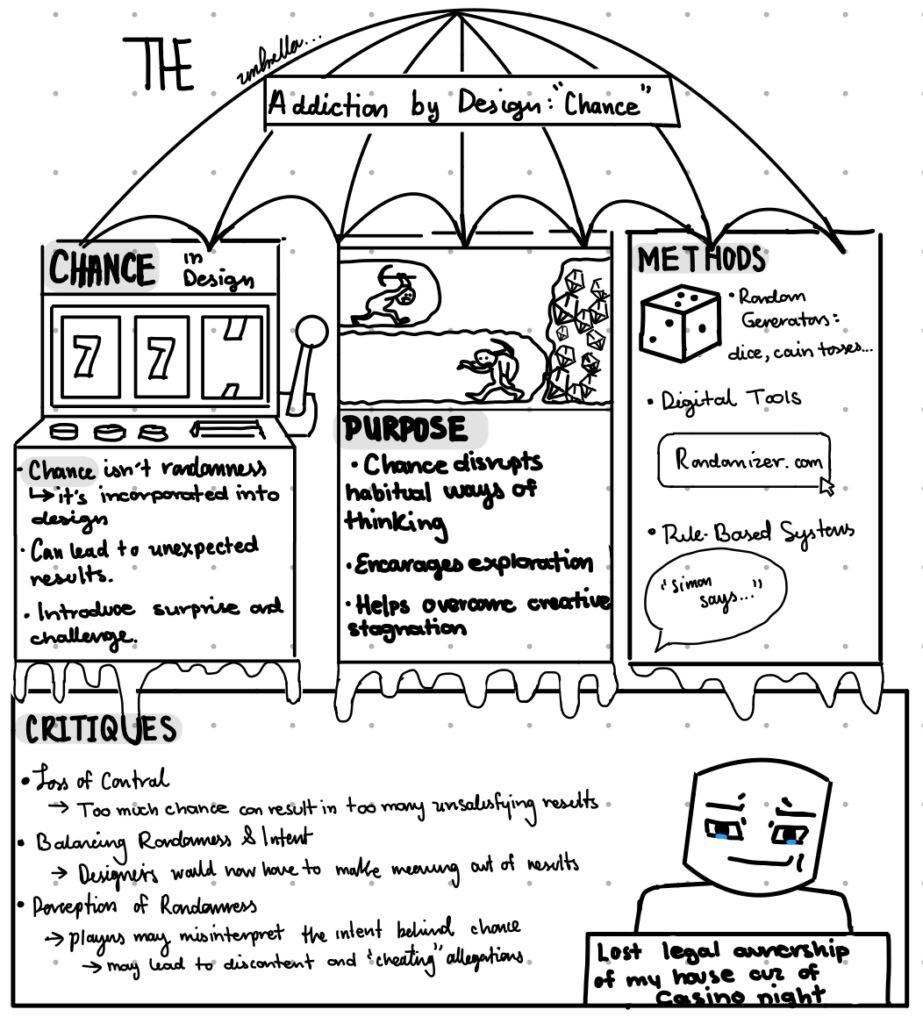 THE
umbrella...
Addiction by Design: "Chance"
CHANCE in Design
7 7 7
• Chance isn't randomness
↳ it's incorporated into
design
• Can lead to unexpected
results.
• Introduce surprise and
challenge.
PURPOSE
• Chance disrupts
habitual ways of
thinking
• Encourages exploration
• Helps overcome creative
stagnation
METHODS
• Random
Generators:
dice, coin tosses...
• Digital Tools
Randomizer.com
• Rule-Based Systems
"Simon
says..."
CRITIQUES
• Loss of Control
→ Too much chance can result in too many unsatisfying results
• Balancing Randomness & Intent
→ Designers would now have to make meaning out of results
• Perception of Randomness
→ players may misinterpret the intent behind chance
→ may lead to discontent and "cheating" allegations
Lost legal ownership
of my house cuz of
Casino night